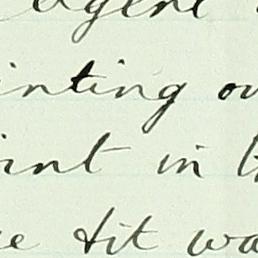 agent
inting ou
int in
e tit wa